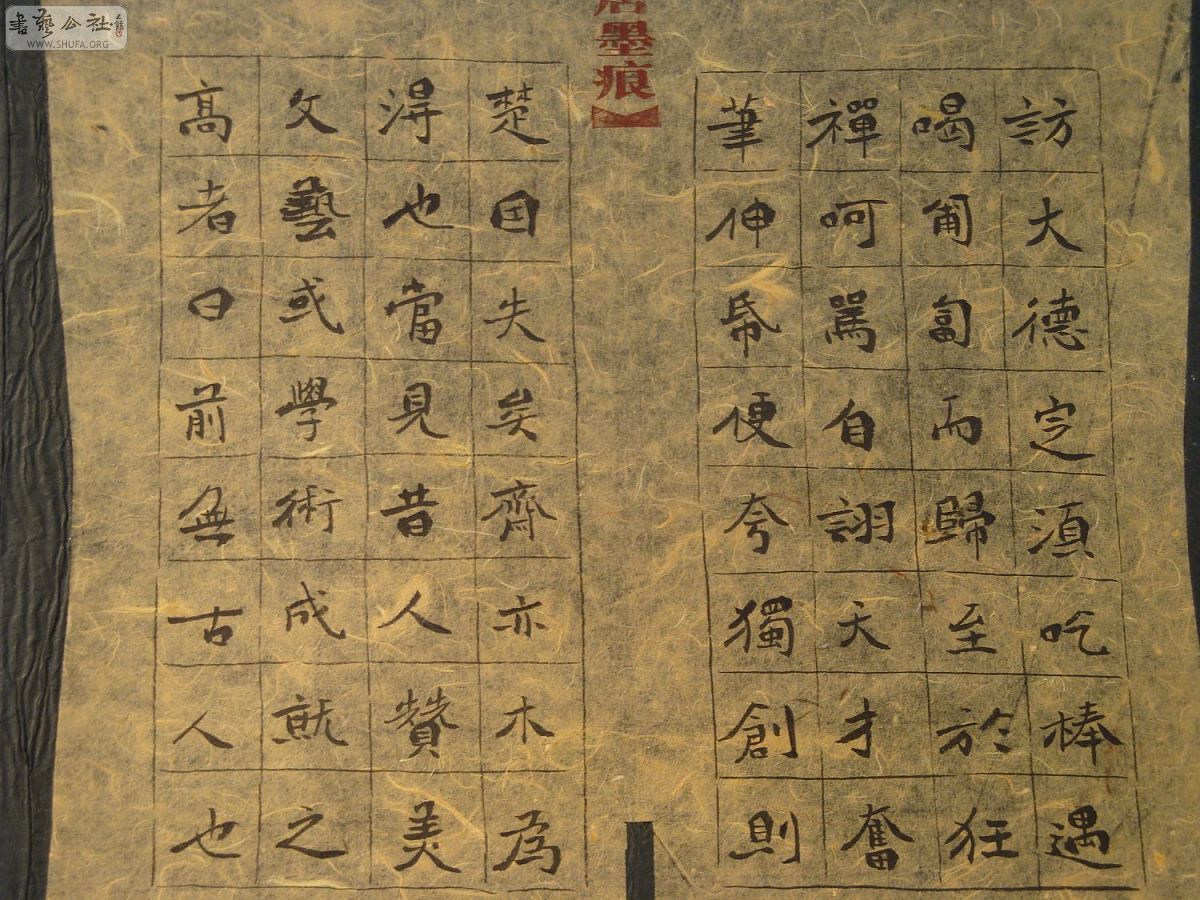 書藝公社
WWW.SHUFA.ORG
居墨痕】
訪大德定須吃棒遇
喝匍匐而歸至於狂
禪呵罵自詡天才奮
筆伸帋便夸獨創則
楚固失矣齊亦未為
得也當見昔人贊美
文藝或學術成就之
高者曰前無古人也